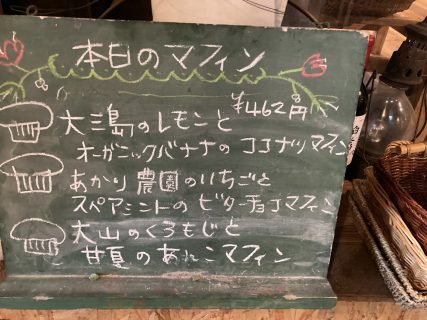 本日のマフィン
¥462円
大三島のレモンと
オーガニックバナナのココナツマフィン
あかり農園のいちごと
スペアミントのビターチョコマフィン
大山のくろもじと
甘夏のあんこマフィン